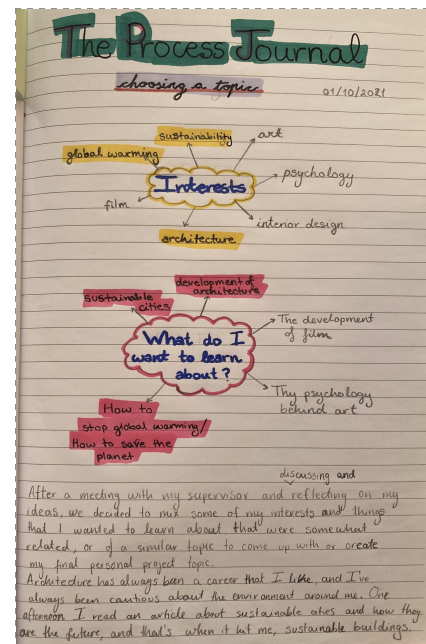 The Process Journal
choosing a topic
01/10/2021
sustainability
art
global warming
Interests
psychology
film
interior design
architecture
development of
architecture
sustainable
cities
The development
of film
What do I
want to learn
about?
Thy psychology
behind art
How to
stop global warming/
How to save the
planet
discussing and
After a meeting with my supervisor and reflecting on my
ideas, we decided to mix some of my interests and things
that I wanted to learn about, that were somewhat
related, or of a simular topic to come up with or create
my final personal project topic.
Architecture has always been a career that I like, and I've
always been cautious about the environment around me. One
afternoon I read an article about sustainable cities and how they
are the future, and that's when it hit me, sustainable buildings.